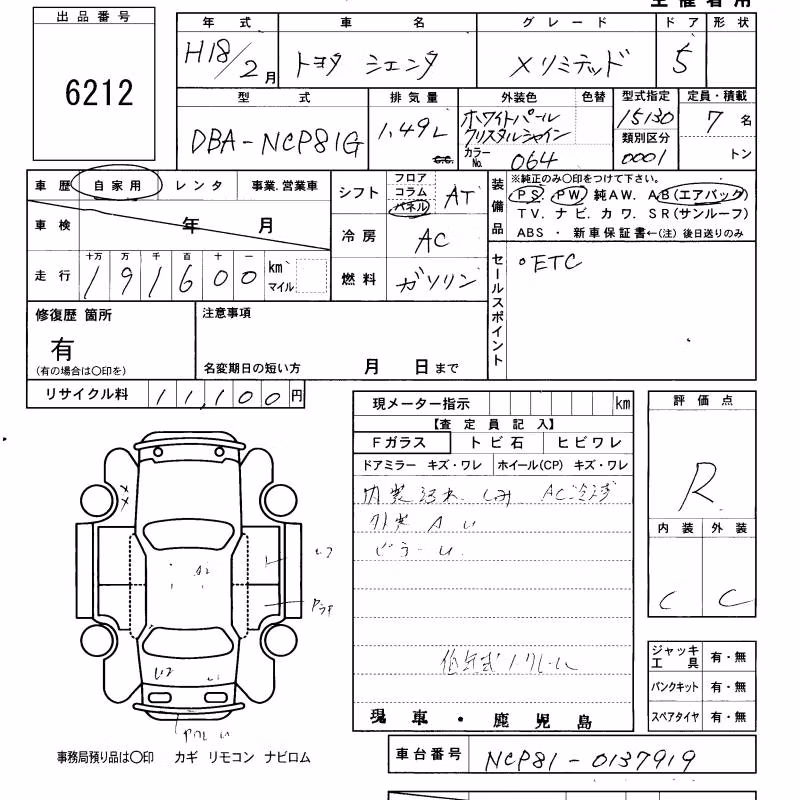 出品番号
6212
年式 車名 グレード ドア 形状
H18/2月 トヨタ シエンタ Xリミテッド 5
型式 排気量 外装色 色替 型式指定 定員・積載
DBA-NCP81G 1.49L c.c. ホワイトパール クリスタルシャイン 15130 7名
カラーNo. 064 類別区分 0001 トン
車歴 自家用 レンタ 事業.営業車
車検 年 月
走行 十万 万 千 百 十 一
191600 km マイル
シフト フロア コラム パネル AT
冷房 AC
燃料 ガソリン
装備品
※純正のみ〇印をつけて下さい。
PS. PW. 純AW. AB(エアバッグ)
TV. ナビ. カワ. SR(サンルーフ)
ABS ・ 新車保証書←(注) 後日送りのみ
セールスポイント
・ETC
修復歴 箇所
有
(有の場合は〇印を)
注意事項
名変期日の短い方 月 日まで
リサイクル料 11,100円
現メーター指示 km
【査定員記入】
Fガラス トビ石 ヒビワレ
ドアミラー キズ・ワレ ホイール(CP) キズ・ワレ
内装 汚れ しみ AC
外装 A
現車・鹿児島
評価点
R
内装 外装
C C
ジャッキ工具 有・無
パンクキット 有・無
スペアタイヤ 有・無
事務局預り品は〇印 カギ リモコン ナビロム
車台番号 NCP81-0137919